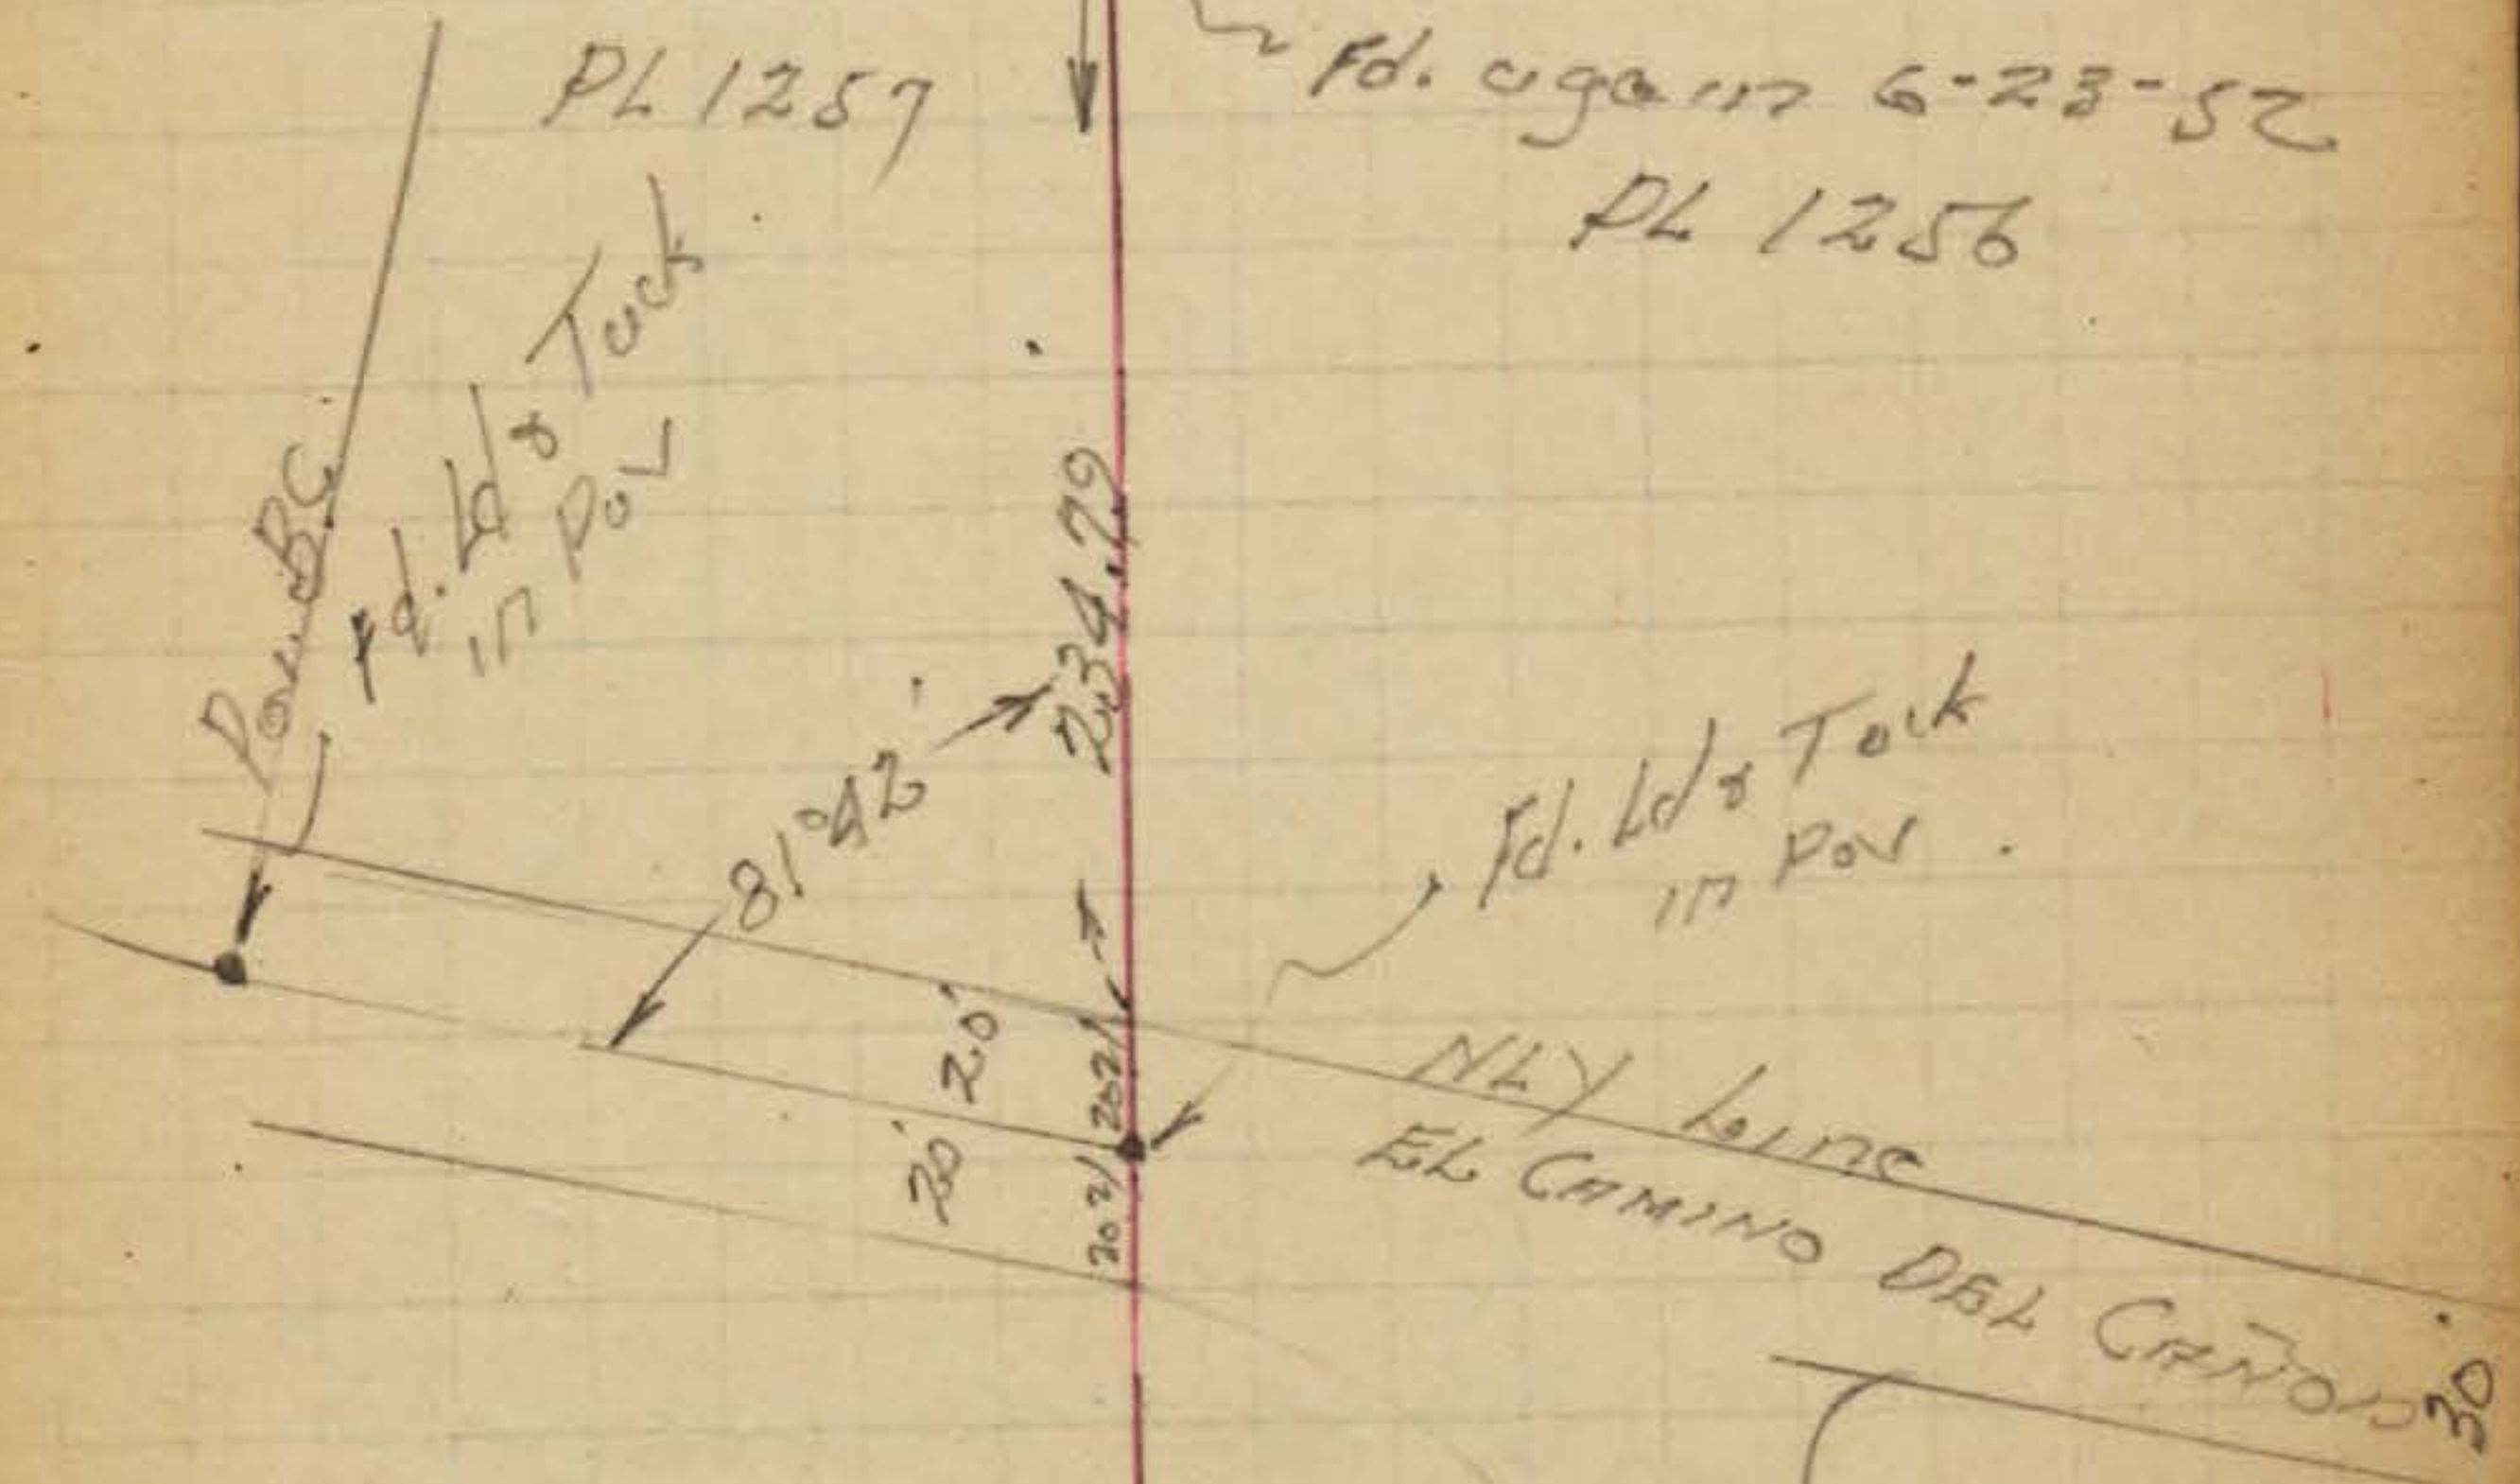 PL 1257
Fd. again 6-23-52
PL 1256
BC
Fd. Ld & Tack
in Pov
234.79
81°42
Fd. Ld & Tack
in Pov
20'
20'
20 21
20 21
NLY Line
EL CAMINO DEL CAÑON
30